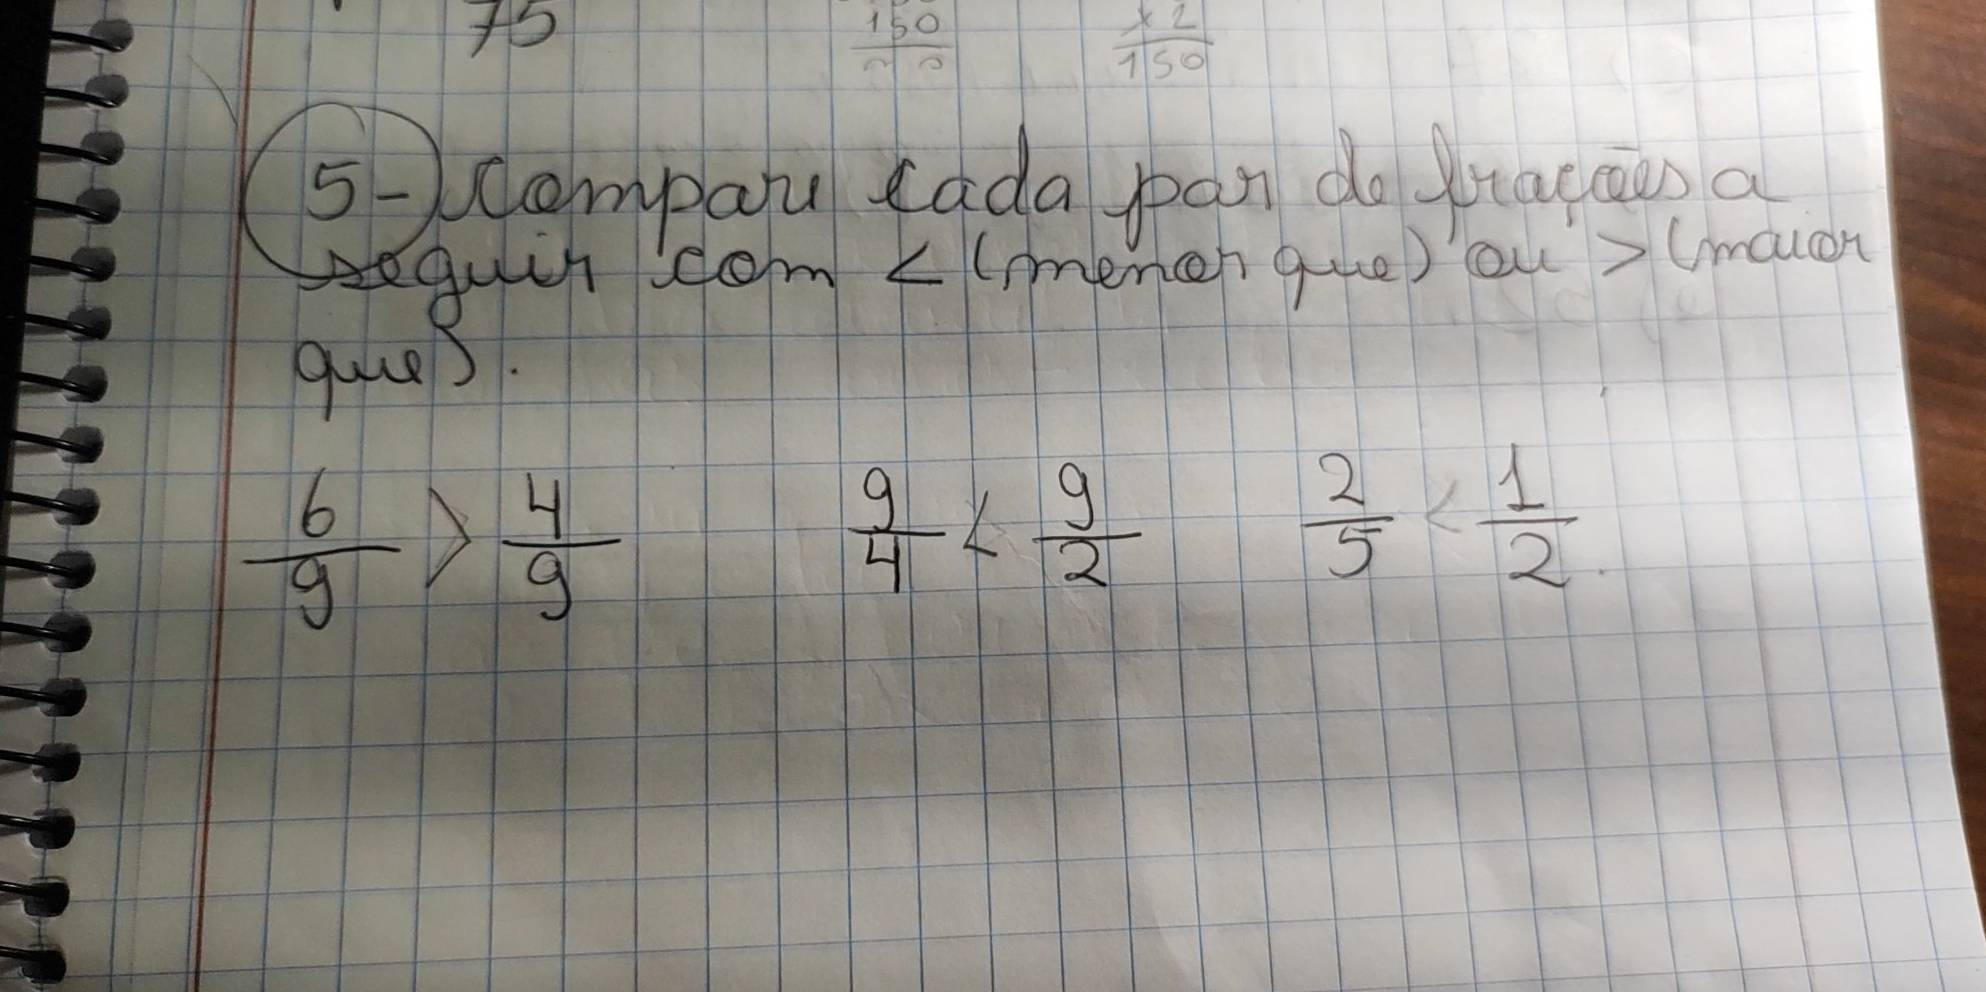 75 150 x2
150
5-) Compare cada par de frações a
seguir com < (menor que) ou > (maior
que).
6/9 > 4/9 9/4 < 9/2 2/5 < 1/2